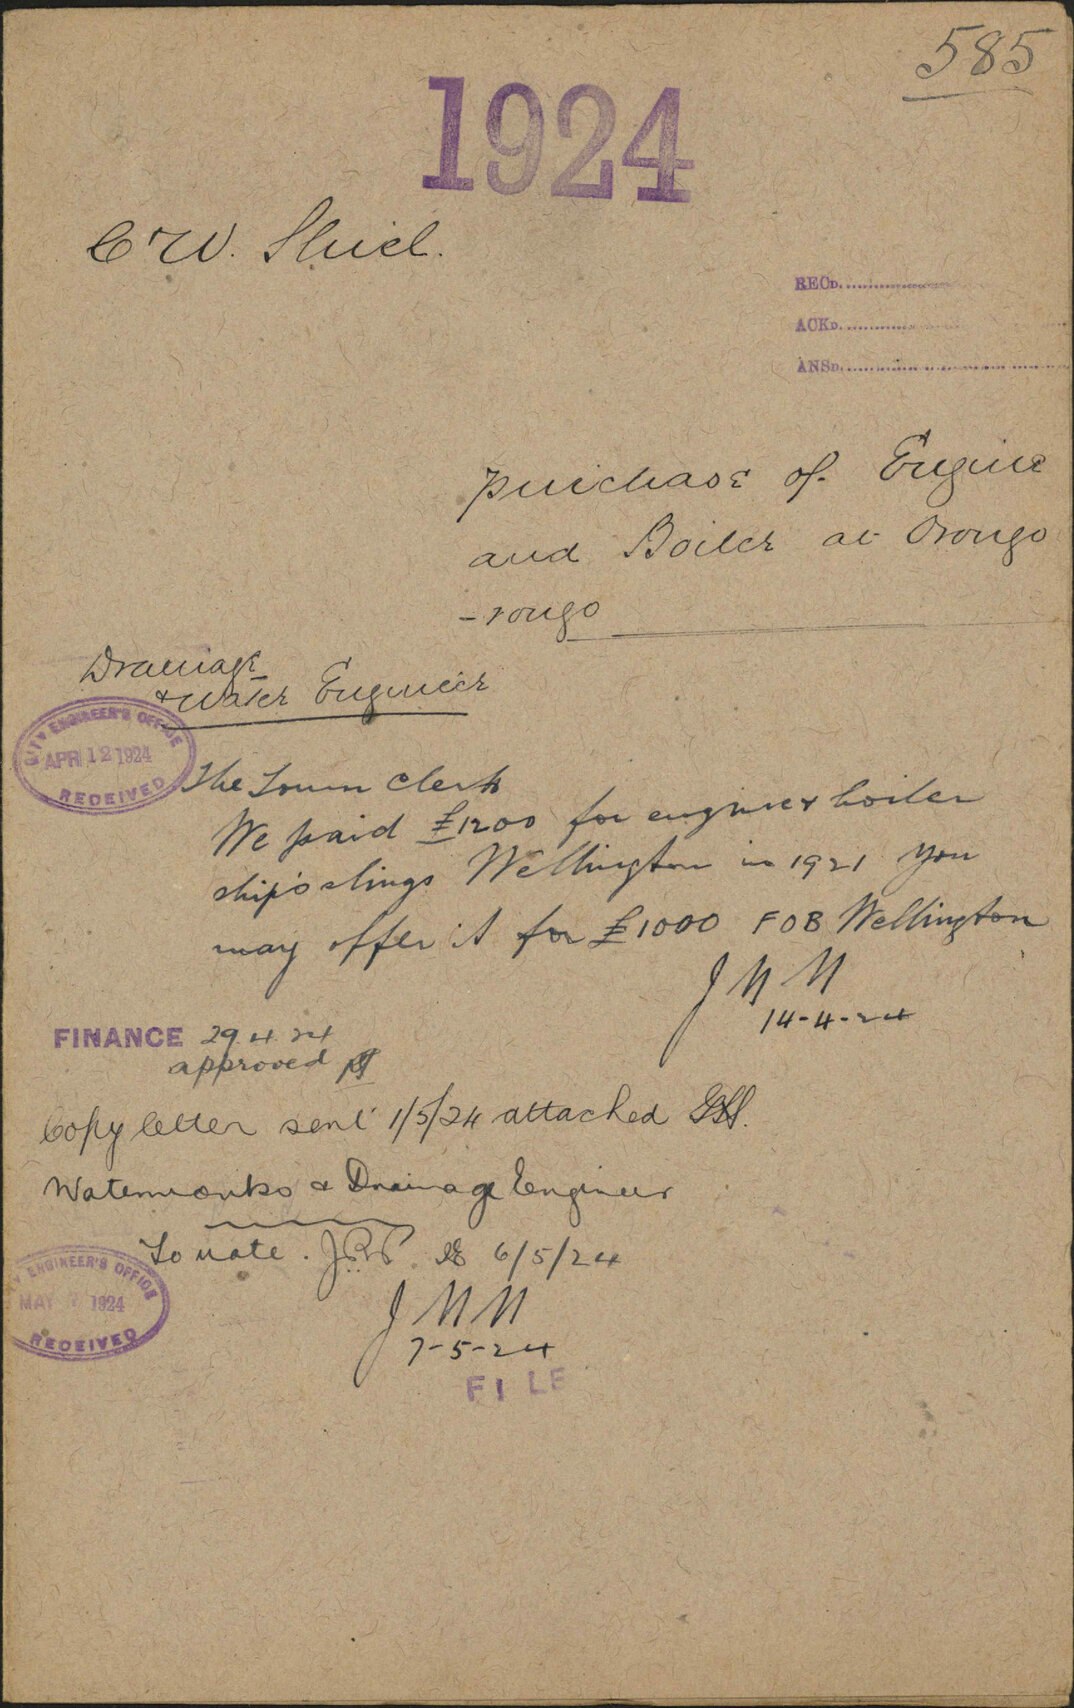 585
1924
C W. Shiel.
RECD.
ACKD.
ANSD.
Purchase of Engine
and Boiler at Orongo
-rongo
Drainage
& Water Engineer
CITY ENGINEER'S OFFICE
APR 12 1924
RECEIVED
The Town Clerk
We paid £1200 for engine & boiler
ship's slings Wellington in 1921 you
may offer it for £1000 FOB Wellington
14-4-24
FINANCE 29.4.24
approved
Copy letter sent 1/5/24 attached
Waterworks & Drainage Engineer
To note. 6/5/24
ENGINEER'S OFFICE
MAY 1924
RECEIVED
7-5-24
FILE